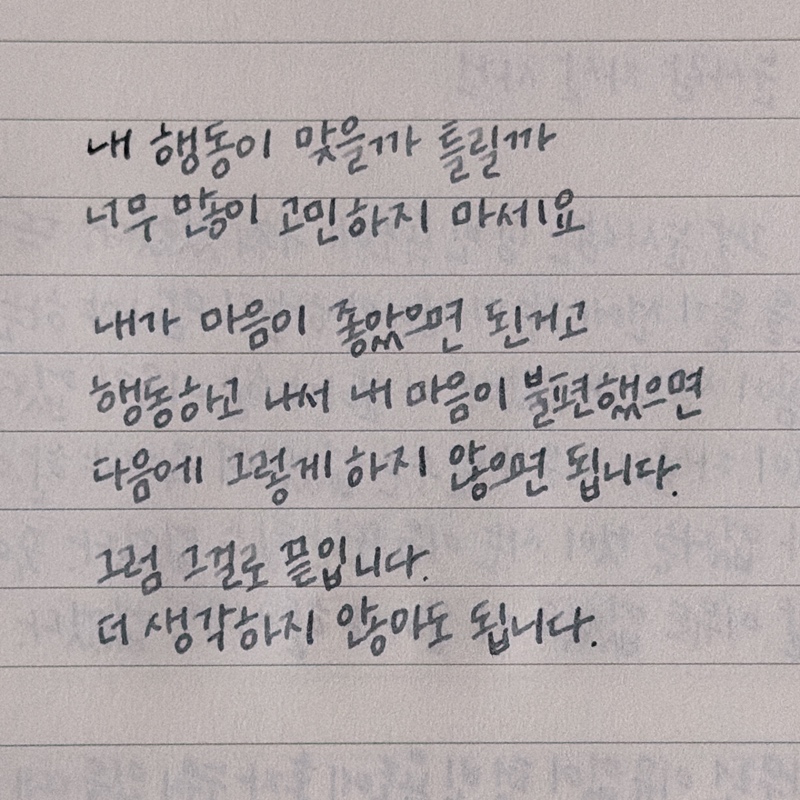 내 행동이 맞을까 틀릴까
너무 많이 고민하지 마세요
내가 마음이 좋았으면 된거고
행동하고 나서 내 마음이 불편했으면
다음에 그렇게 하지 않으면 됩니다.
그럼 그걸로 끝입니다.
더 생각하지 않아도 됩니다.